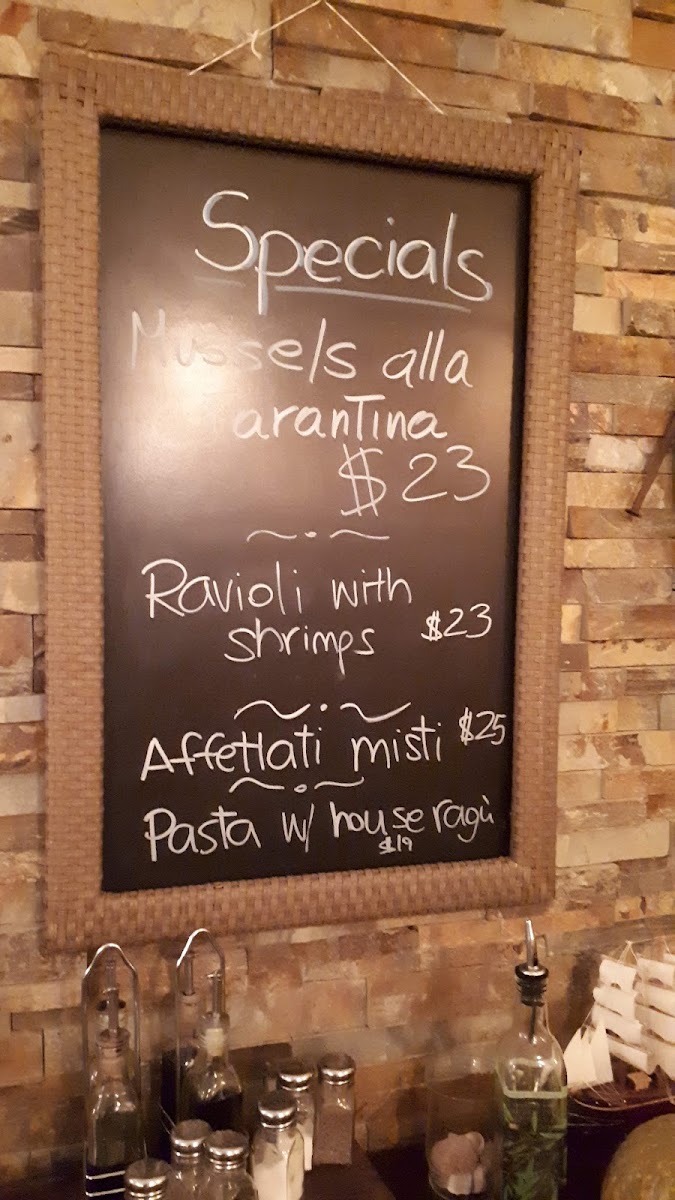 Specials
Mussels alla
Tarantina
$23
Ravioli with
shrimps $23
Affettati misti $25
Pasta w/ house ragù
$19